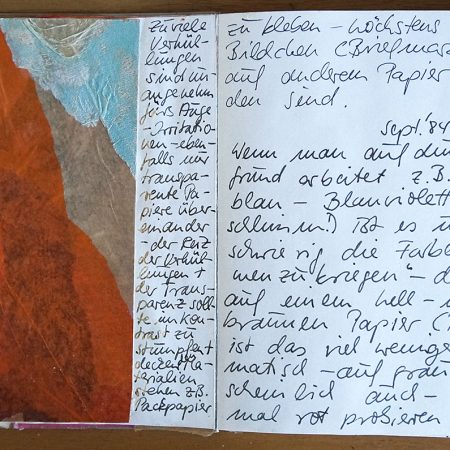 Zu viele
Verhül-
lungen
sind un-
angenehm
fürs Auge
- Irritatio-
nen - eben-
falls nur
transpa-
rente Pa-
piere über-
einander
- der Reiz
der Verhül-
lungen +
der Trans-
parenz soll-
te im Kon-
trast zu
stumpfen +
deckend. Ma-
terialien
stehen z.B.
Packpapier
zu kleben - höchstens
Bildchen (Briefmar
auf anderem Papier
den sind.
Sept. '84
Wenn man auf dun
grund arbeitet z.B.
blau - Blauviolett
schlimm!) ist es u
schwierig die Farbe
men zu kriegen" - d
auf einem hell -
braunen Papier (
ist das viel wenige
matisch - auf grau
scheinlich auch -
mal rot probieren